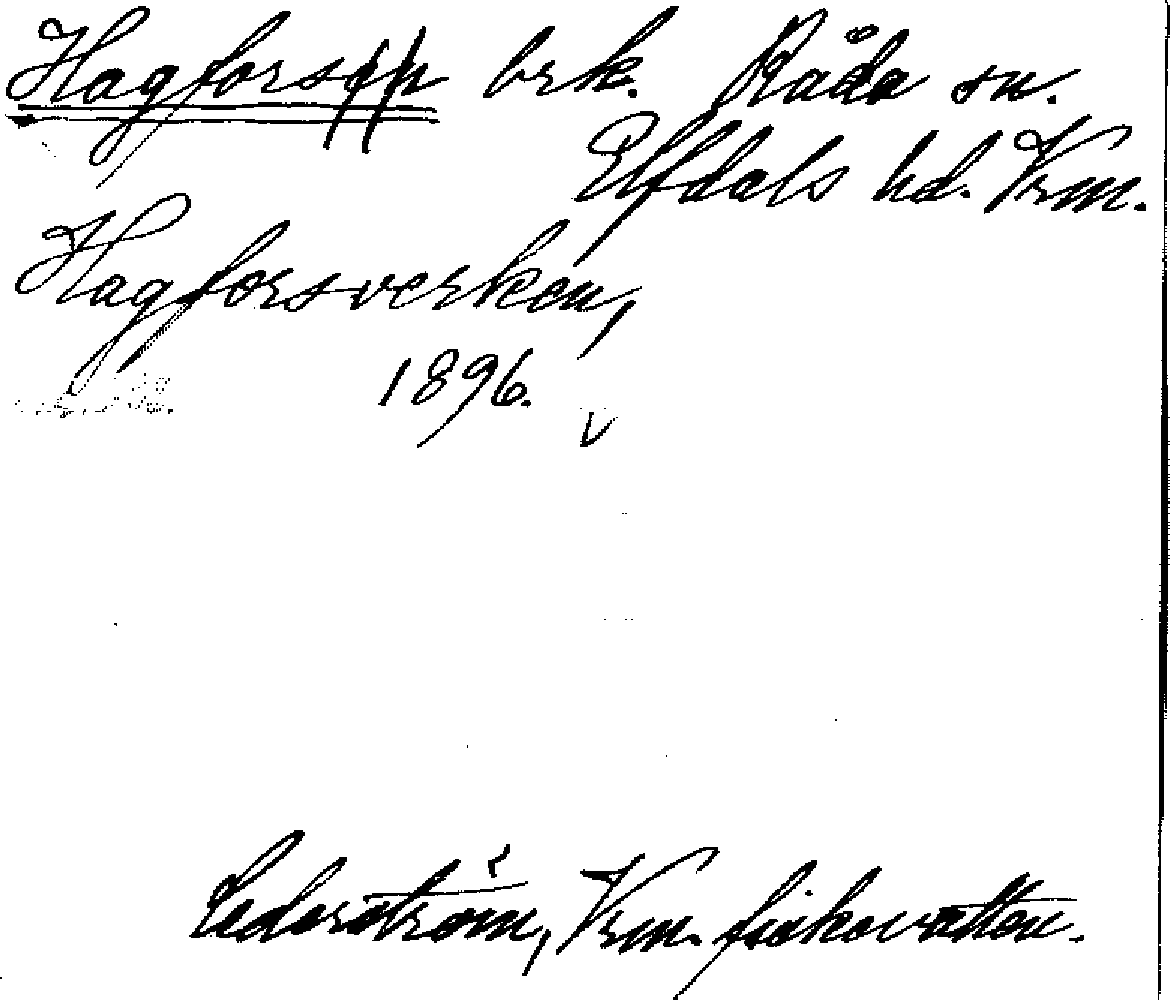 Hagfors brk. Råda sn.
Elfdals hd. Vrm.
Hagforsverken,
1896.
v
Cederström, Vrm. fiskevatten.